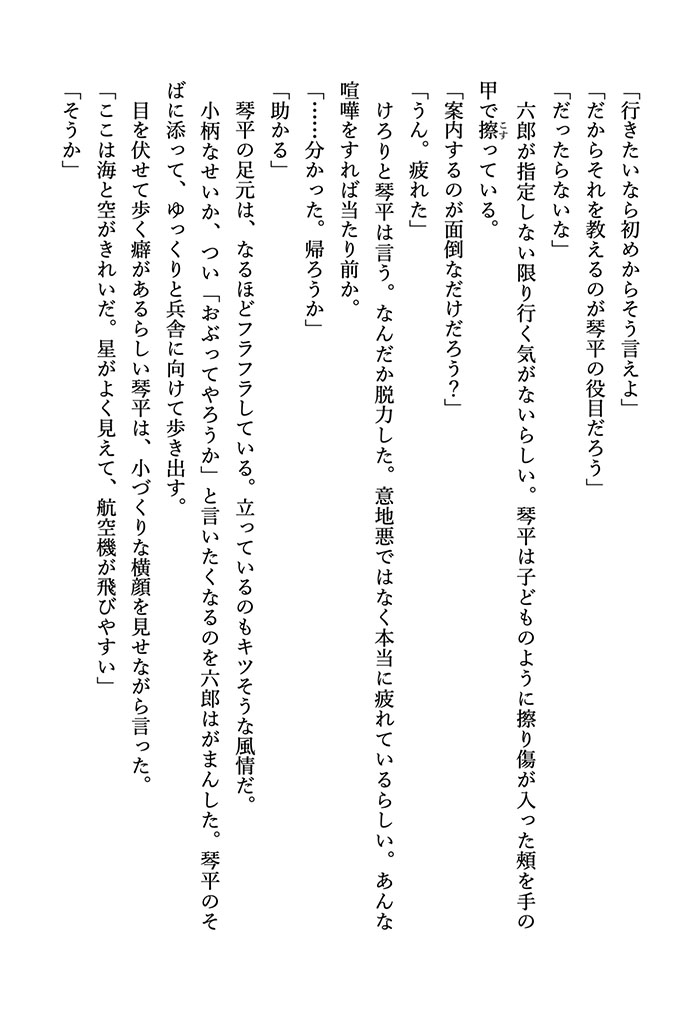 「行きたいなら初めからそう言えよ」
「だからそれを教えるのが琴平の役目だろう」
「だったらないな」
　六郎が指定しない限り行く気がないらしい。琴平は子どものように擦り傷が入った頰を手の
甲で擦こすっている。
「案内するのが面倒なだけだろう？」
「うん。疲れた」
　けろりと琴平は言う。なんだか脱力した。意地悪ではなく本当に疲れているらしい。あんな
喧嘩をすれば当たり前か。
「……分かった。帰ろうか」
「助かる」
　琴平の足元は、なるほどフラフラしている。立っているのもキツそうな風情だ。
　小柄なせいか、つい「おぶってやろうか」と言いたくなるのを六郎はがまんした。琴平のそ
ばに添って、ゆっくりと兵舎に向けて歩き出す。
　目を伏せて歩く癖があるらしい琴平は、小づくりな横顔を見せながら言った。
「ここは海と空がきれいだ。星がよく見えて、航空機が飛びやすい」
「そうか」